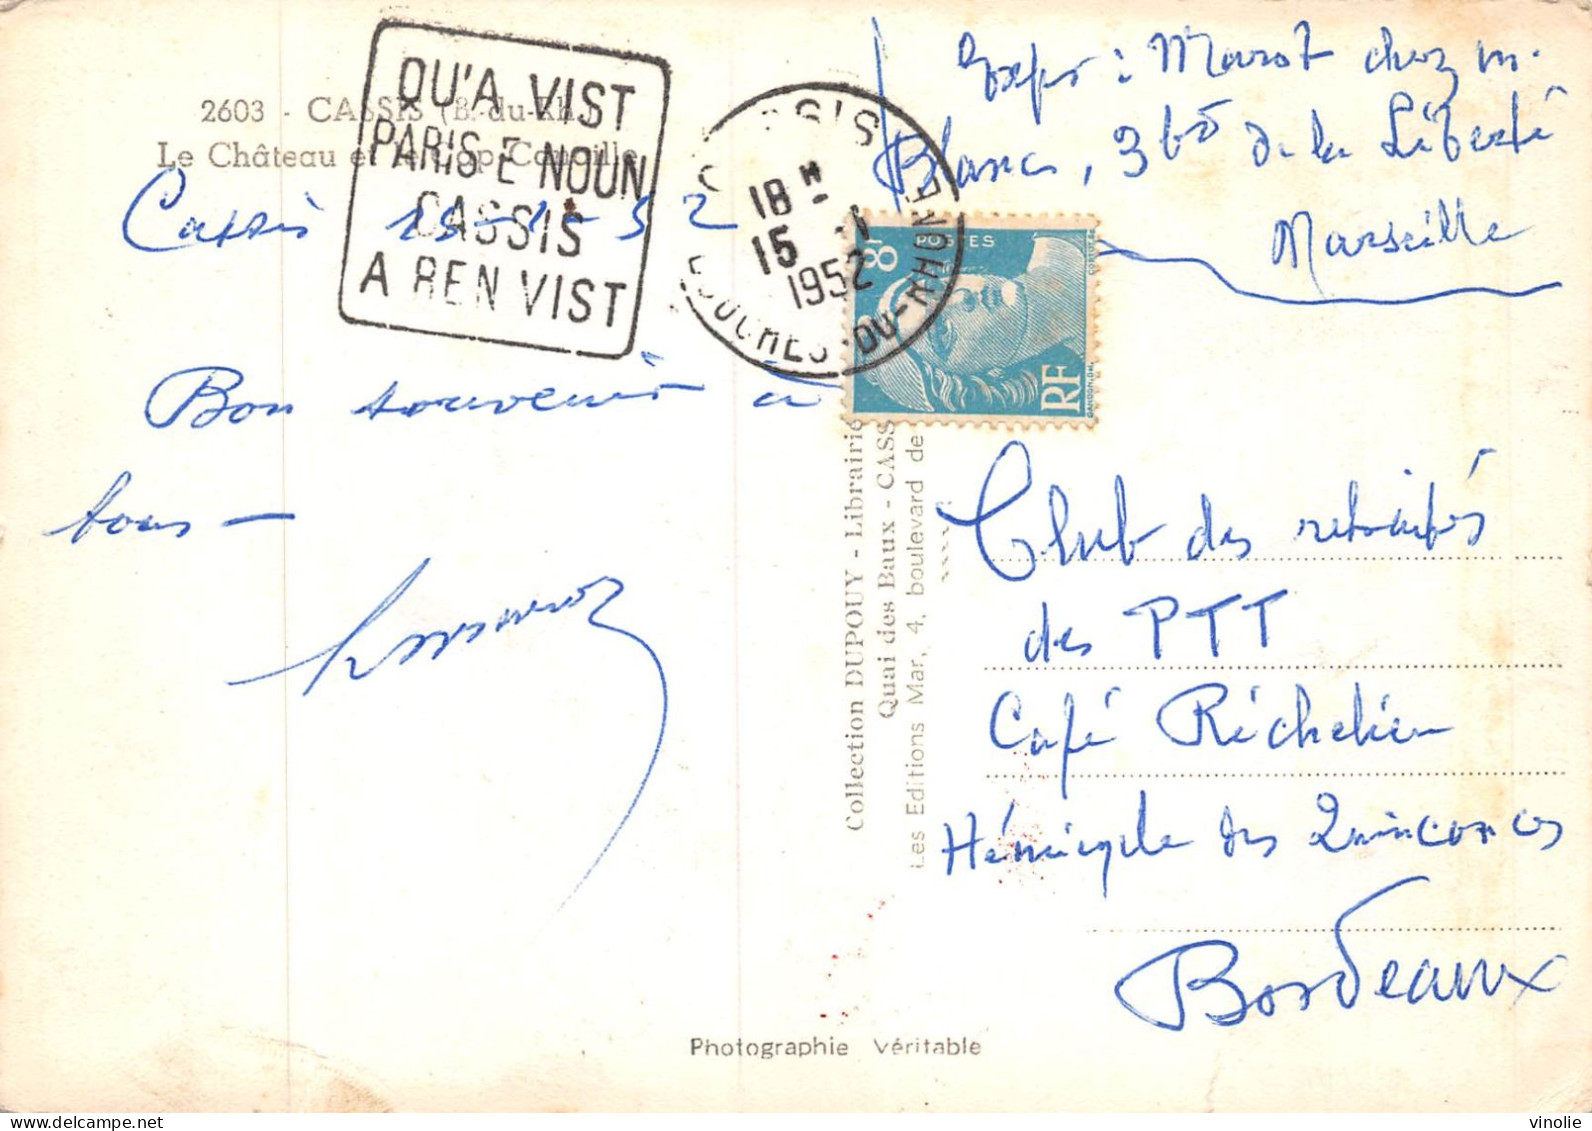 2603 - CASSIS (B.-du-Rh.)
Le Château et le Cap Canaille
QU'A VIST
PARIS E NOUN
CASSIS
A REN VIST
CASSIS
18 H
15 -1
1952
BOUCHES-DU-RHONE
8F
POSTES
RF
Exp : Marot chez M.
Blanc, 3 bd de la Liberté
Marseille
Cassis 15-1-52
Bon souvenir à
tous —
Collection DUPOUY - Librairie
Quai des Baux - CASS
Les Editions Mar, 4, boulevard de
Club des retraités
des PTT
Café Richelieu
Hémicycle des Quinconces
Bordeaux
Photographie Véritable
vinolie